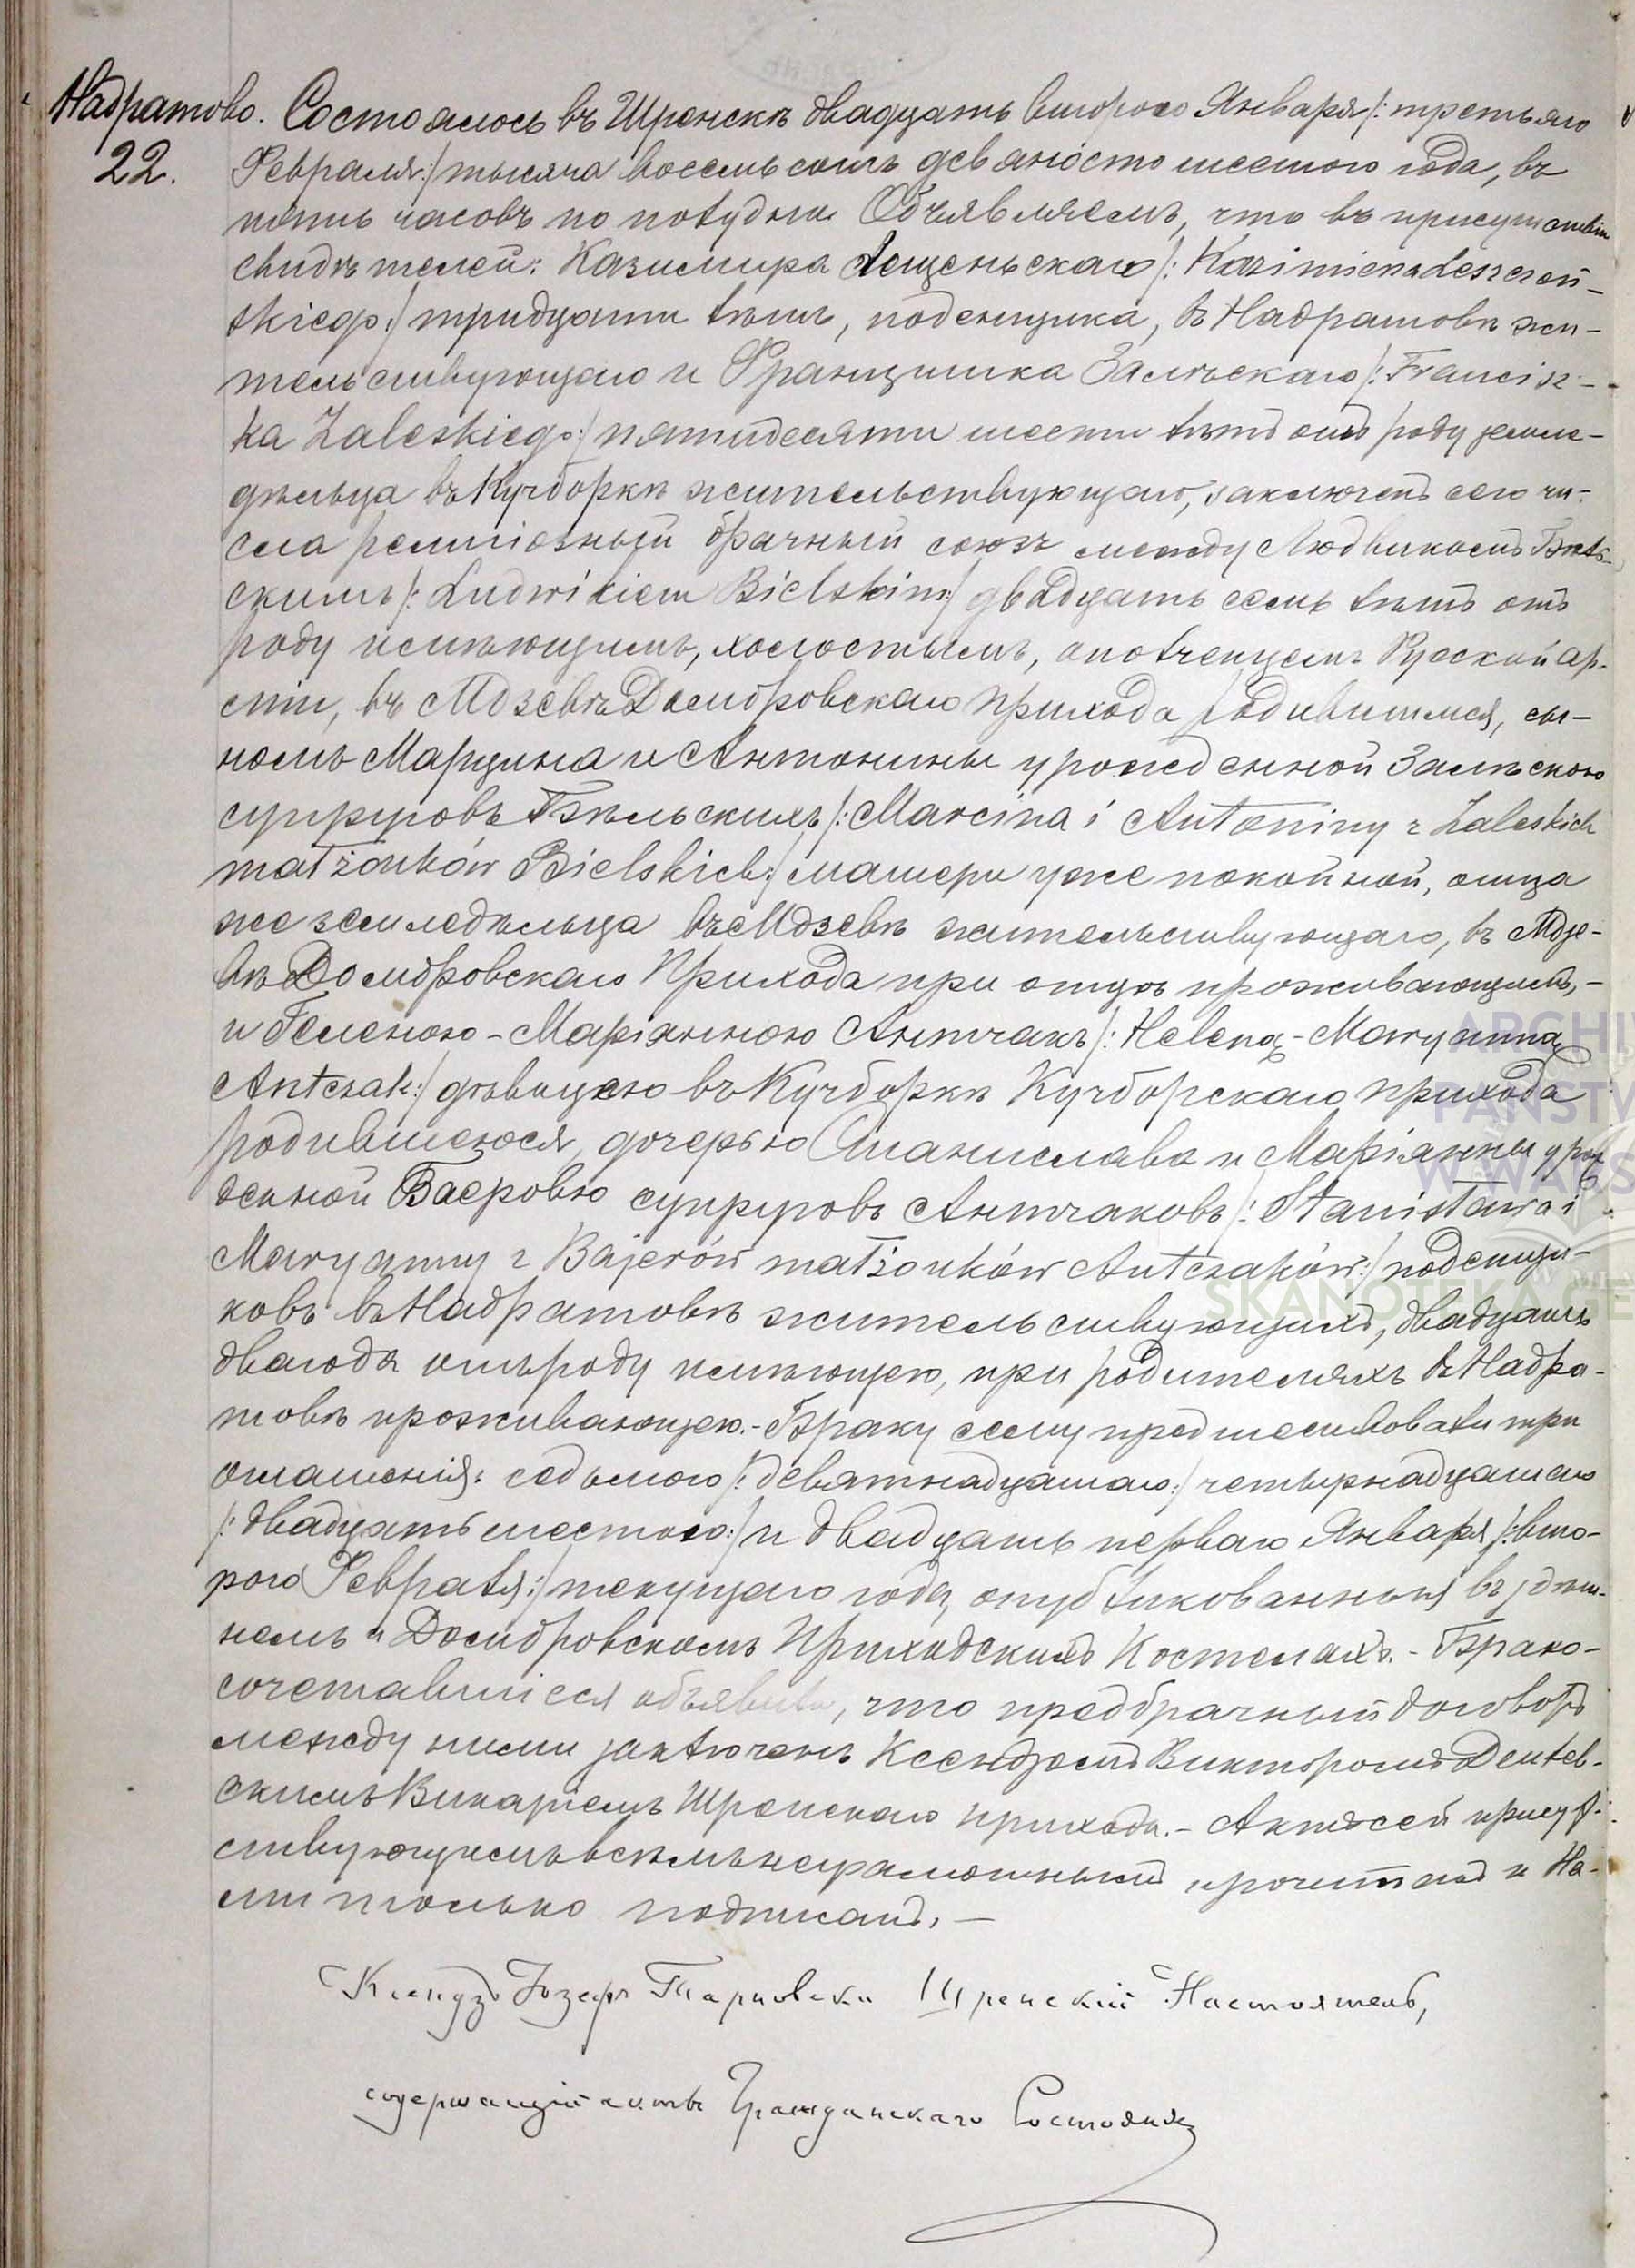 Надратово. Состоялось въ Шренскѣ двадцать втораго Января /: третьяго
22. Февраля :/ тысяча восемьсотъ девяносто шестого года, въ
пять часовъ по полудни. Объявляемъ, что въ присутствіи
свидѣтелей: Казимира Лещеньскаго /: Kazimierza Leszczeń-
skiego :/ тридцати лѣтъ, поденщика, въ Надратовѣ жи-
тельствующаго и Францишка Залѣскаго /: Francisz-
ka Zaleskiego :/ пятидесяти шести лѣтъ отъ роду земле-
дѣльца въ Кучборкѣ жительствующаго, заключенъ сего чи-
сла религіозный брачный союзъ между Людвикомъ Бѣль-
скимъ /: Ludwikiem Bielskim :/ двадцать семь лѣтъ отъ
роду имѣющимъ, холостымъ, ополченцемъ Русской ар-
міи, въ Мдзевѣ Домбровскаго прихода родившимся, сы-
номъ Марцина и Антонины урожденной Залѣскою
супруговъ Бѣльскихъ /: Marcina i Antoniny z Zaleskich
małżonków Bielskich :/ матери уже покойной, отца
же земледѣльца въ Мдзевѣ жительствующаго, въ Мдзе-
вѣ Домбровскаго Прихода при отцѣ проживающимъ, -
и Геленою-Маріанною Антчакъ /: Heleną-Maryanną
Antczak :/ дѣвицею въ Кучборкѣ Кучборскаго прихода
родившеюся, дочерью Станислава и Маріанны урож
денной Баеровъ супруговъ Антчаковъ /: Stanisława i
Maryanny z Bajerów małżonków Antczaków :/ поденщи-
ковъ въ Надратовѣ жительствующихъ, двадцать
два года отъ роду имѣющею, при родителяхъ въ Надра-
товѣ проживающею. - Браку сему предшествовали три
оглашенія: седьмого /: девятнадцатаго :/ четырнадцатаго
/: двадцать шестого :/ и двадцать перваго Января /: вто-
рого Февраля :/ текущаго года, опубликованныя въ здѣш-
немъ и Домбровскомъ Приходскихъ Костелахъ. - Брако-
сочетавшіеся объявили, что предбрачный договоръ
между ними заключенъ Ксендзомъ Викторомъ
скимъ Викаріемъ Шренскаго прихода. - Актъ сей присут-
ствующимъ всѣмъ неграмотнымъ прочитанъ и На-
ми только подписанъ. -
Ксендзъ Іозефъ Тарновски Шренскій Настоятель,
содержащій акты Гражданскаго Состоянія
ARCHI
PAŃSTW
W WARS
SKANOTEKA GE